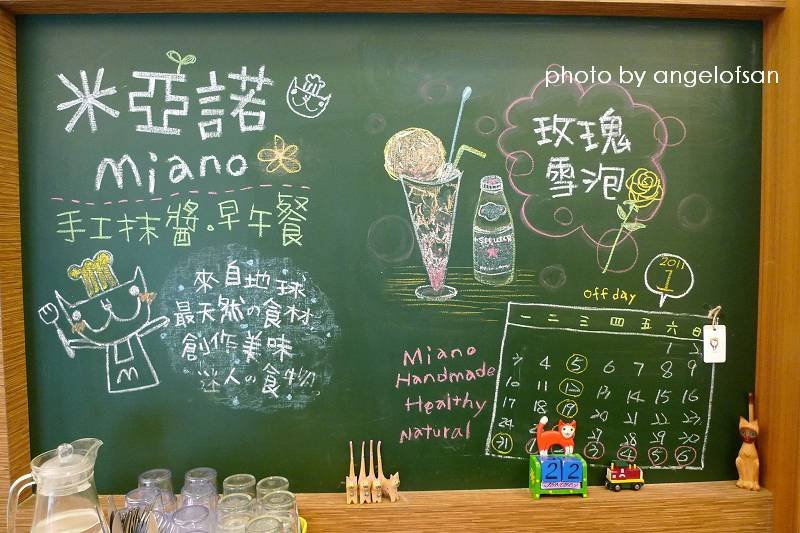 photo by angelofsan
米亞諾
miano
手工抹醬.早午餐
來自地球
最天然の食材
創作美味
迷人の食物
M
玫瑰
雪泡
2011
1
off day
一 二 三 四 五 六 日
1 2
3 4 5 6 7 8 9
10 11 12 13 14 15 16
17 18 19 20 21 22 23
24 27 28 29 30
31 3 4 5 6
Miano
Handmade
Healthy
Natural
22
JANUARY